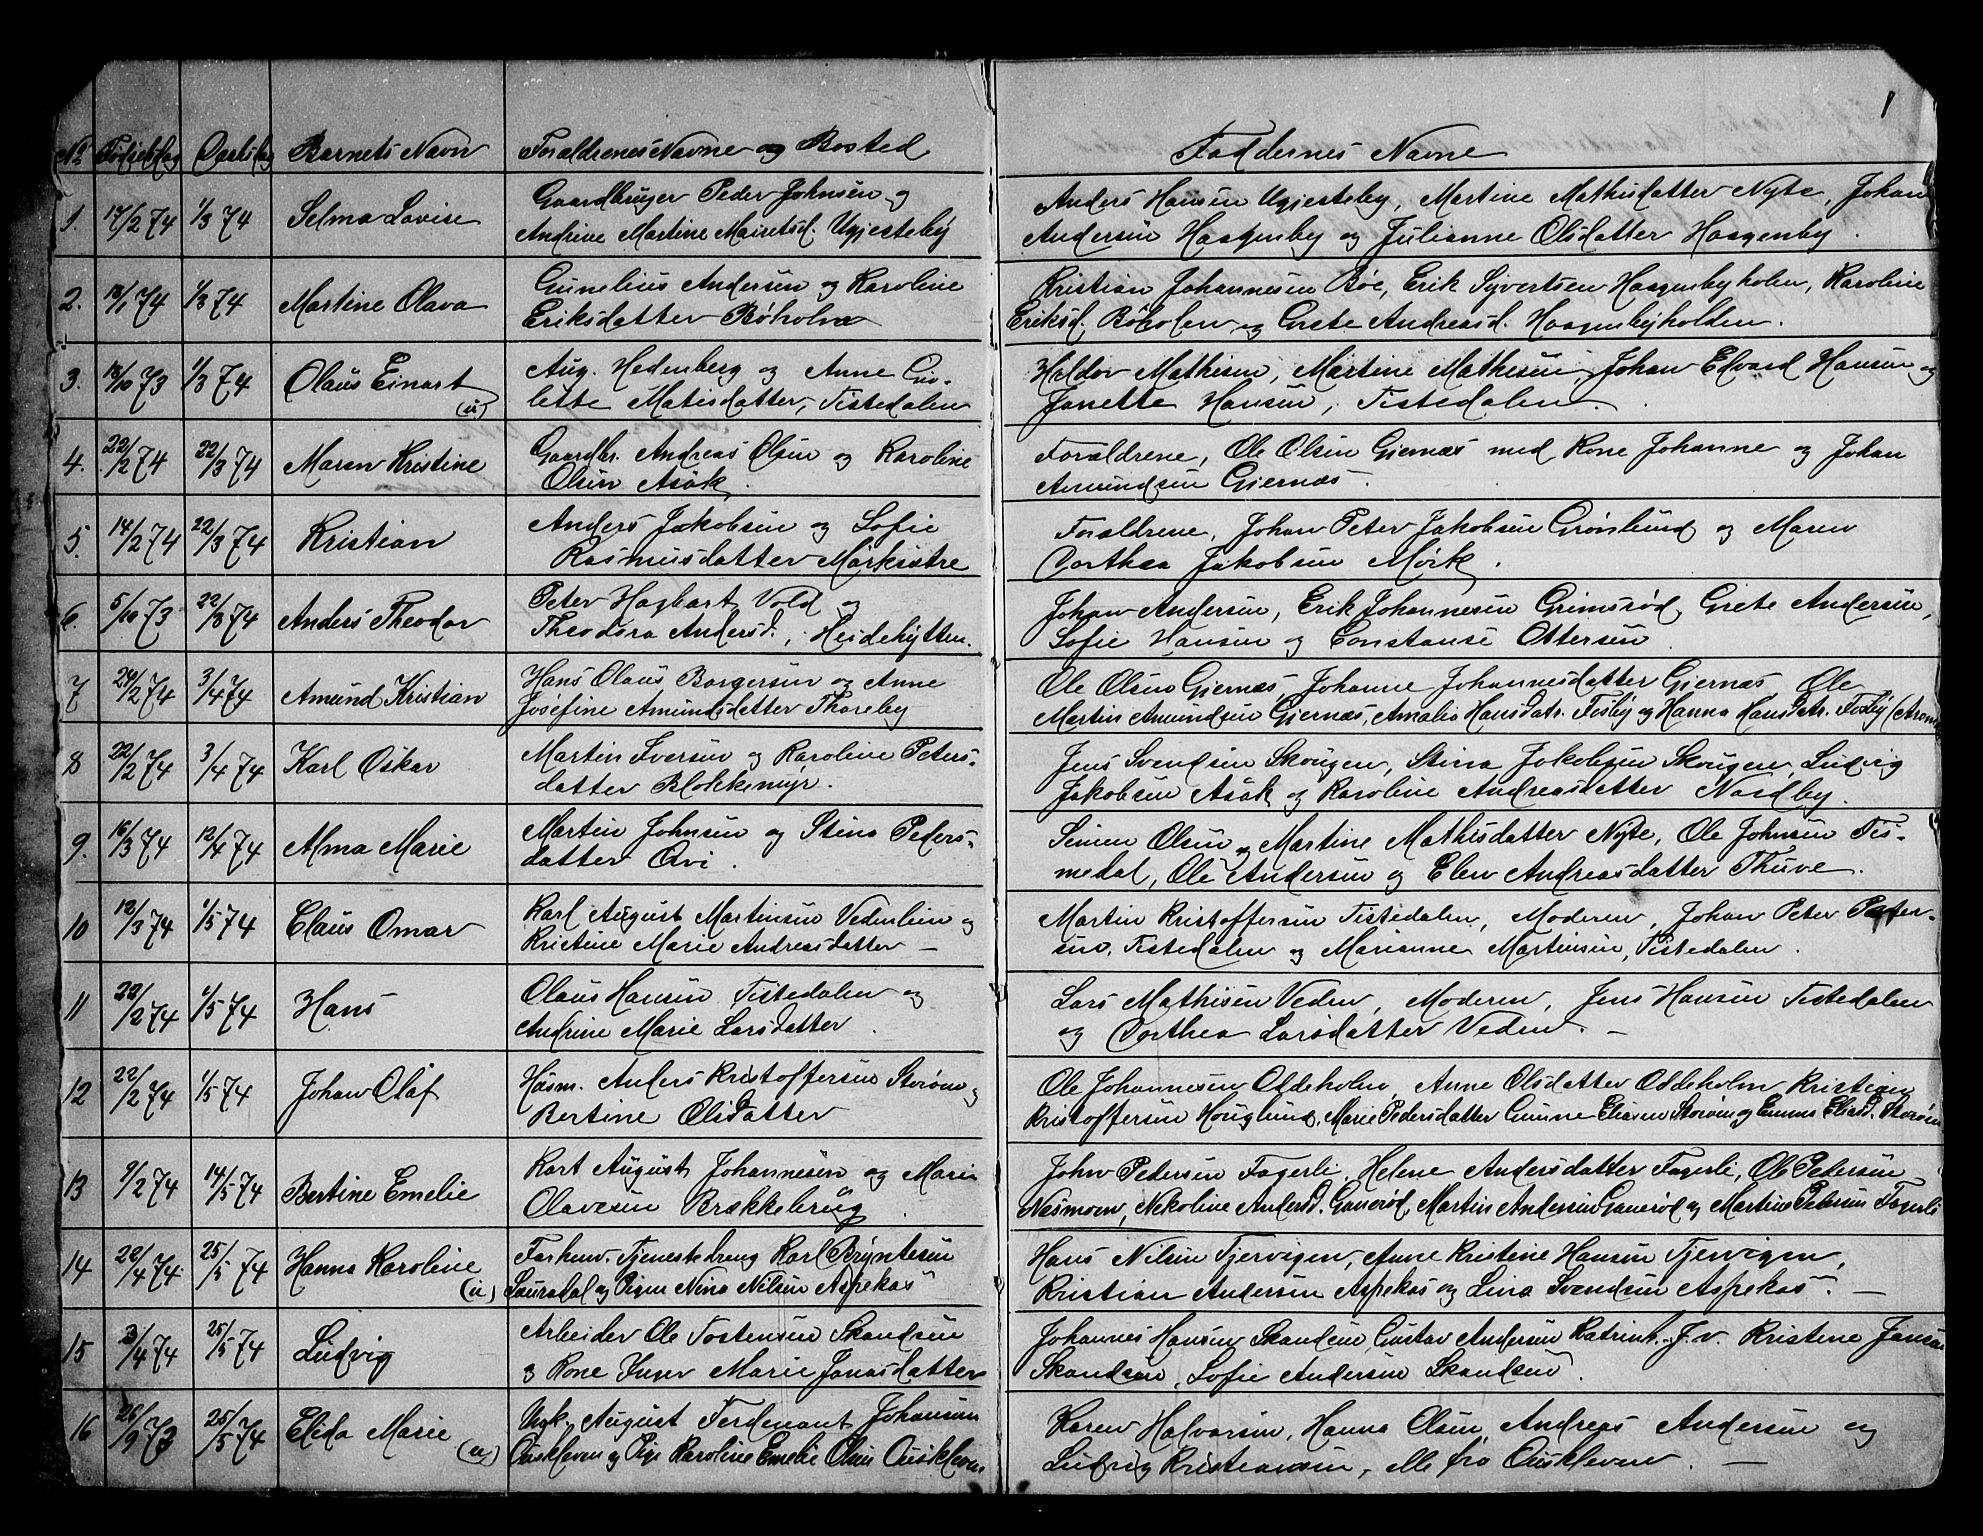 1
No Fødselsdag Daabsdag Barnets Navn Forældrenes Navne og Bosted Faddernes Navne
1. 17/2 74 1/3 74 Selma Lovise Gaardbruger Peder Johnsen og Anders Hansen Ugjesteby, Martine Mathisdatter Nyte, Johan
Andrine Martine Mauretsd. Ugjesteby Andersen Haagenby og Julianne Olsdatter Haagenby.
2. 18/1 74 1/3 74 Martine Olava Gunelius Andersen og Karoline Kristian Johannesen Bøe, Erik Syvertsen Haagenbyholen, Karoline
Eriksdatter Bøholen Eriksd. Bøholen og Grete Andreasd. Haagenbyholden.
3. 18/10 73 1/3 74 Olaus Einart (u) Aug. Hedenberg og Anne Gu- Haldor Mathisen, Martine Mathesen, Johan Edvard Hansen og
lette Matisdatter, Tistedalen Janette Hansen, Tistedalen.
4. 22/2 74 22/3 74 Maren Kristine Gaardbr. Andreas Olsen og Karoline Forældrene, Ole Olsen Gjernæs med Kone Johanne og Johan
Olsen Asak. Amundsen Gjernæs.
5. 14/2 74 22/3 74 Kristian Anders Jakobsen og Sofie Forældrene, Johan Peter Jakobsen Grønlund og Maren
Rasmusdatter Mørksætre Dorthea Jakobsen Mørk.
6. 5/10 73 22/3 74 Anders Theodor Peter Hagbart Vold og Johan Andersen, Erik Johannesen Grimsrød, Grete Andersen,
Theodora Andersd., Heidehytten. Sofie Hansen og Constanse Ottersen
7 24/2 74 3/4 74 Amund Kristian Hans Olaus Borgersen og Anne Ole Olsen Gjernæs, Johanne Johannesdatter Gjernæs, Ole
Josefine Amundsdatter Thoreby Martin Amundsen Gjernæs, Amalia Hansdatr. Tisby og Hanna Hansdatr. Tisby
8 22/2 74 3/4 74 Karl Oskar Martin Iversen og Karoline Peters- Jens Svendsen Skougen, Stina Jakobsen Skougen, Ludvig
datter Blokkemyr. Jakobsen Asak og Karoline Andreasdatter Nordby.
9. 16/3 74 12/4 74 Alma Marie Martin Johnsen og Stina Peders- Simen Olsen og Martine Mathisdatter Nyte, Ole Johnsen Tis-
datter Qvi. medal, Ole Andersen og Elen Andreasdatter Thuve.
10 12/3 74 1/5 74 Claus Omar Karl August Martinsen Vedenlien og Martin Kristoffersen Tistedalen, Moderen, Johan Peter Peter-
Kristine Marie Andreasdatter – sen, Tistedalen og Marianne Martinsen, Tistedalen.
11 22/2 74 1/5 74 Hans Olaus Hansen Tistedalen og Lars Mathisen Veden, Moderen, Jens Hansen Tistedalen
Andrine Marie Larsdatter. og Dorthea Larsdatter Veden. –
12 22/2 74 1/5 74 Johan Olaf Husm. Anders Kristoffersen Storøen og Ole Johannesen Oddeholm, Anne Olsdatter Oddeholm, Kristian
Bertine Olsdatter Kristoffersen Houglund, Marie Pedersdatter Gunne Eliasen Storøen og Emma Eliasd. Storøen
13 9/2 74 14/5 74 Bertine Emelie Kart August Johannesen og Marie John Pedersen Fagerli, Helene Andersdatter Fagerli, Ole Petersen
Olavesen Brækkebrug. Nesmoen, Nekoline Andersd. Ganerød, Martin Andersen Ganerød og Martine Petersen Fagerli
14 22/4 74 25/5 74 Hanna Karoline (u) Forhenv. Tjenestedreng Karl Bryntesen Hans Nilsen Tjervigen, Anne Kristine Hansen Tjervigen,
Sauradal og Pigen Nina Nilsen Aspekas Kristian Andersen Aspekas og Lina Svendsen Aspekas. –
15 3/4 74 25/5 74 Ludvig Arbeider Ole Tostensen Skandsen Johannes Hansen Skandsen, Gustav Andersen Katrinh. J.v. Kristine Jansen
og Kone Inger Marie Jonasdatter Skandsen, Sofie Andersen Skandsen.
16 26/9 73 25/5 74 Elida Marie (u) Ungk. August Ferdenant Johansen Karen Halvorsen, Hanna Olsen, Andreas Andersen og
Ouskleven og Pige Karoline Emelie Olsen Ouskleven Ludvig Kristiansen, alle fra Ouskleven. –